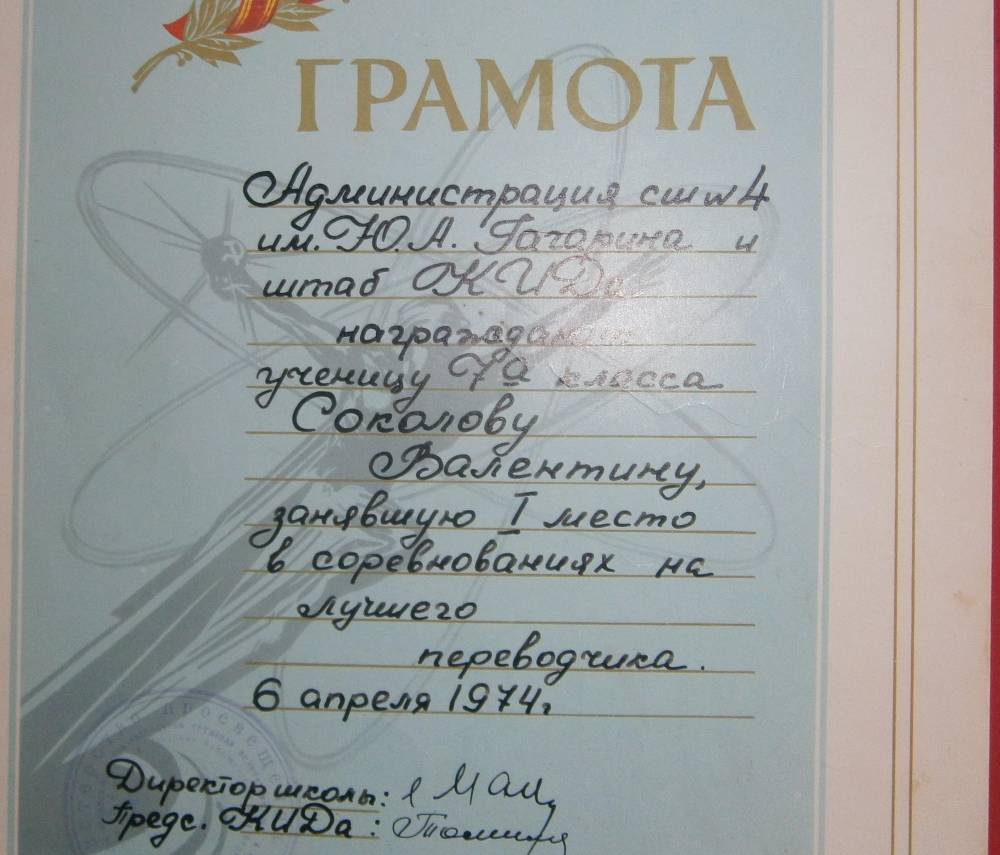 ГРАМОТА
Администрация сш № 4
им. Ю. А. Гагарина и
штаб КИДа
награждают
ученицу 7а класса
Соколову
Валентину,
занявшую I место
в соревнованиях на
лучшего
переводчика.
6 апреля 1974г.
просвеще
Директор школы:
Предс. КИДа: